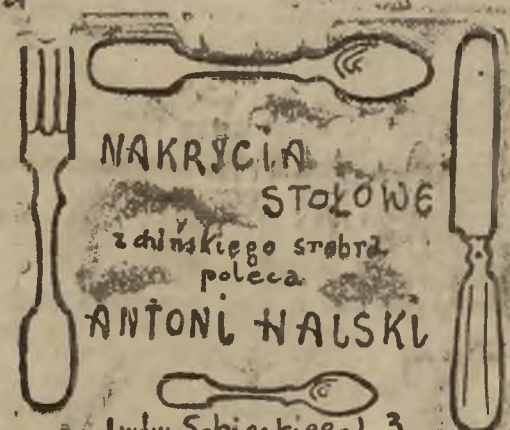 NAKRYCIA
STOŁOWE
z chińskiego srebra
poleca
ANTONI HALSKI
Lwów Sobieskiego l. 3